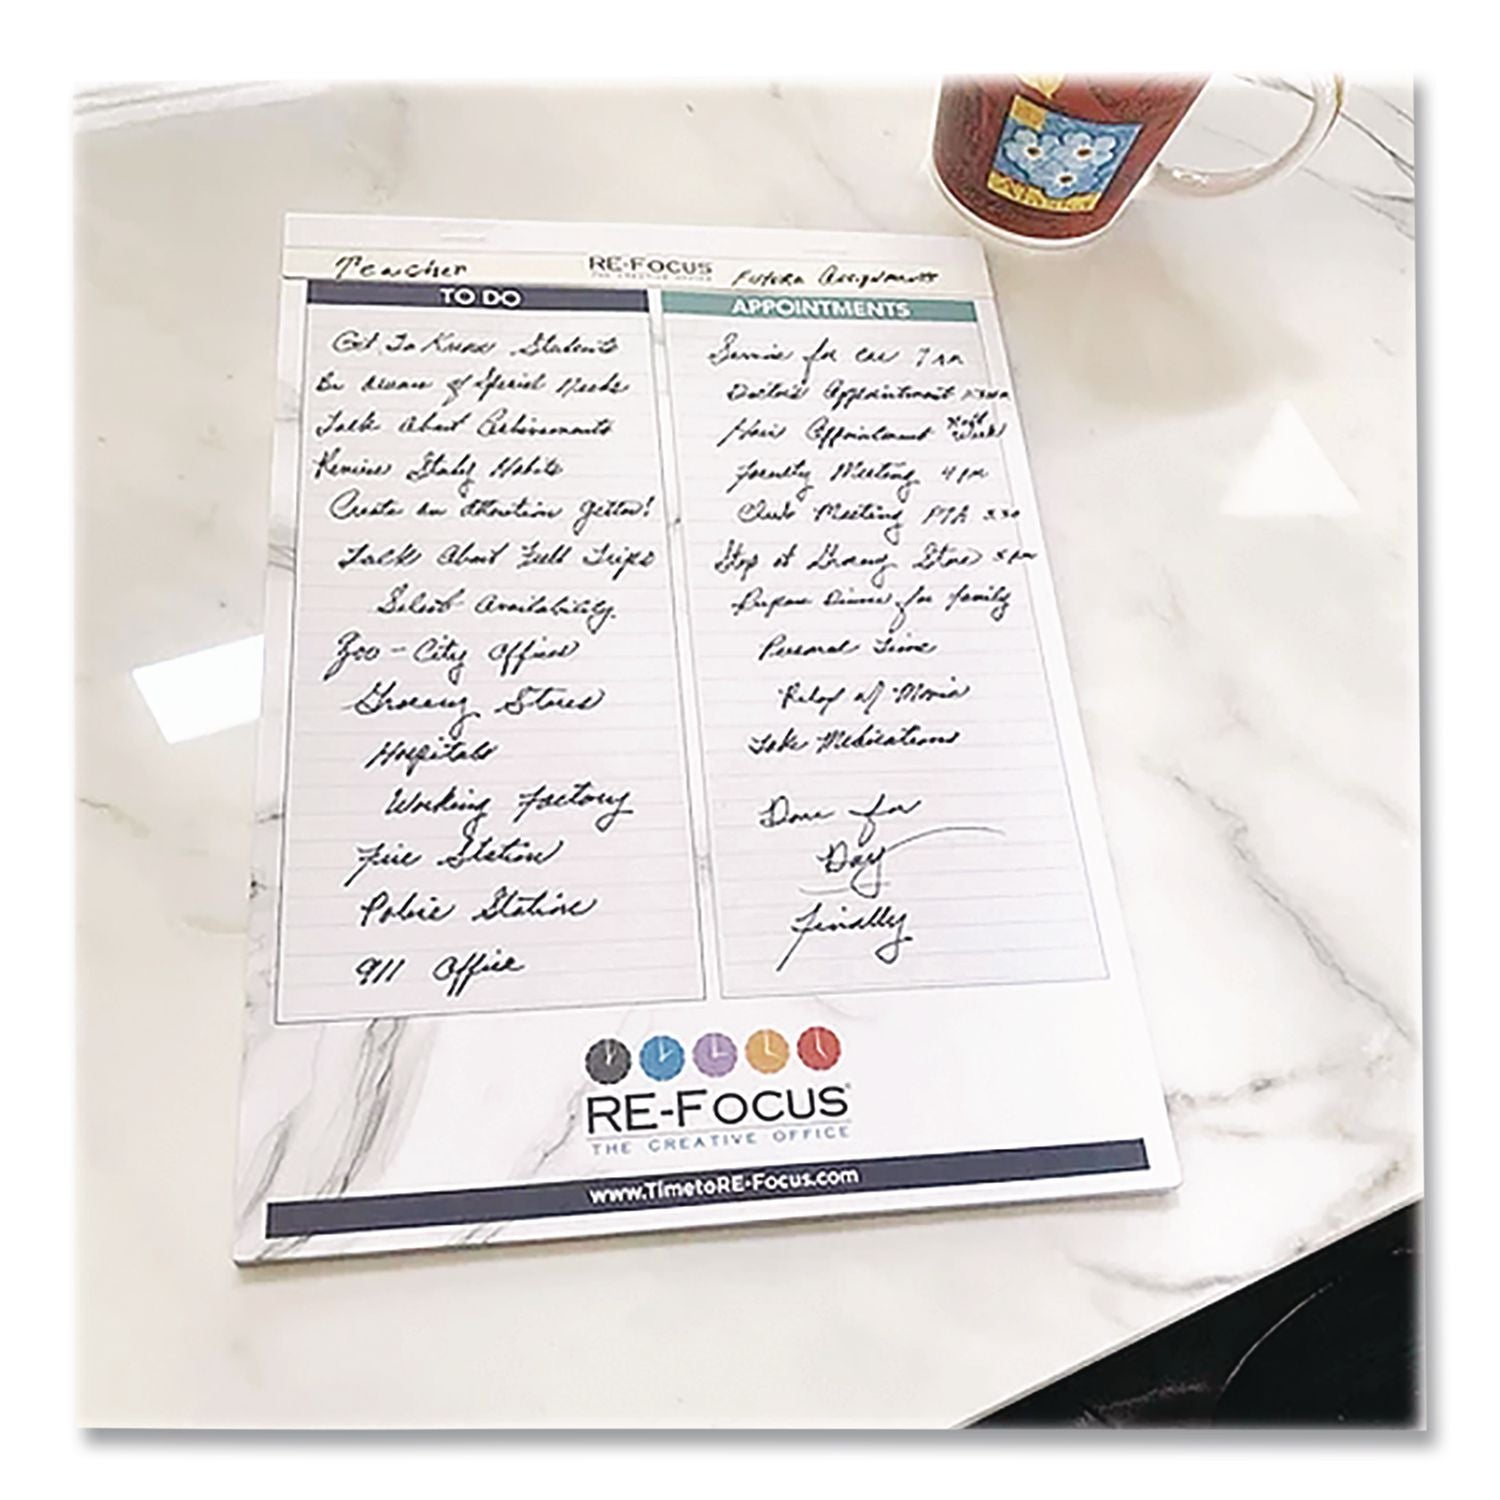 Teacher
RE-FOCUS
THE CREATIVE OFFICE
Future Assignments
TO DO
Get To Know Students
Be aware of Special Needs
Talk About Achievements
Review Study Habits
Create an attention getter!
Talk About Field Trips
Select Availability
Zoo - City Offices
Grocery Stores
Hospitals
Working Factory
Fire Station
Police Station
911 Office
APPOINTMENTS
Service for car 7 am
Doctors Appointment
Hair Appointment Next Week
Faculty Meeting 4 pm
Club Meeting PTA 3:30
Stop at Grocery Store 5 pm
Prepare Dinner for family
Personal Time
Relax w/ Movie
Take Medications
Done for
Day
Finally
RE-FOCUS
THE CREATIVE OFFICE
www.TimetoRE-Focus.com